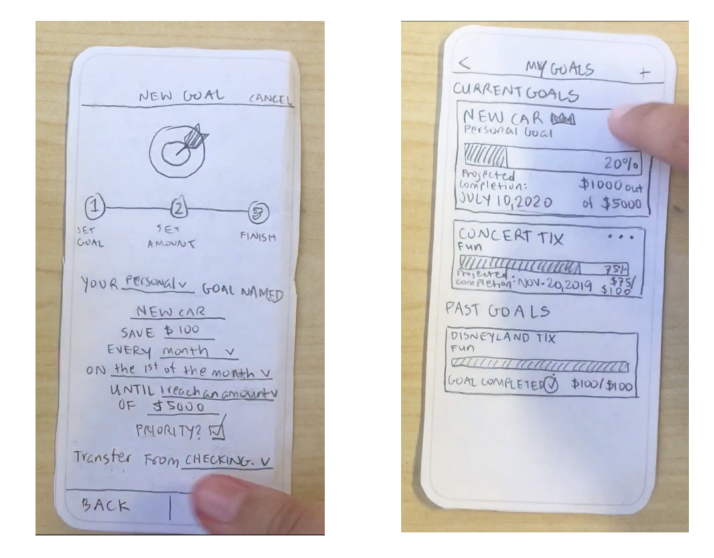 NEW GOAL CANCEL
1 2 3
SET GOAL SET AMOUNT FINISH
YOUR Personal v GOAL NAMED
NEW CAR
SAVE $100
EVERY month v
ON the 1st of the month v
UNTIL I reach an amount v
OF $5000
PRIORITY?
Transfer From CHECKING. v
BACK
< MY GOALS +
CURRENT GOALS
NEW CAR
Personal Goal
20%
Projected
completion: $1000 out
JULY 10, 2020 of $5000
CONCERT TIX ...
Fun
75%
Projected $75/
completion: NOV. 20, 2019 $100
PAST GOALS
DISNEYLAND TIX
Fun
GOAL COMPLETED $100/$100